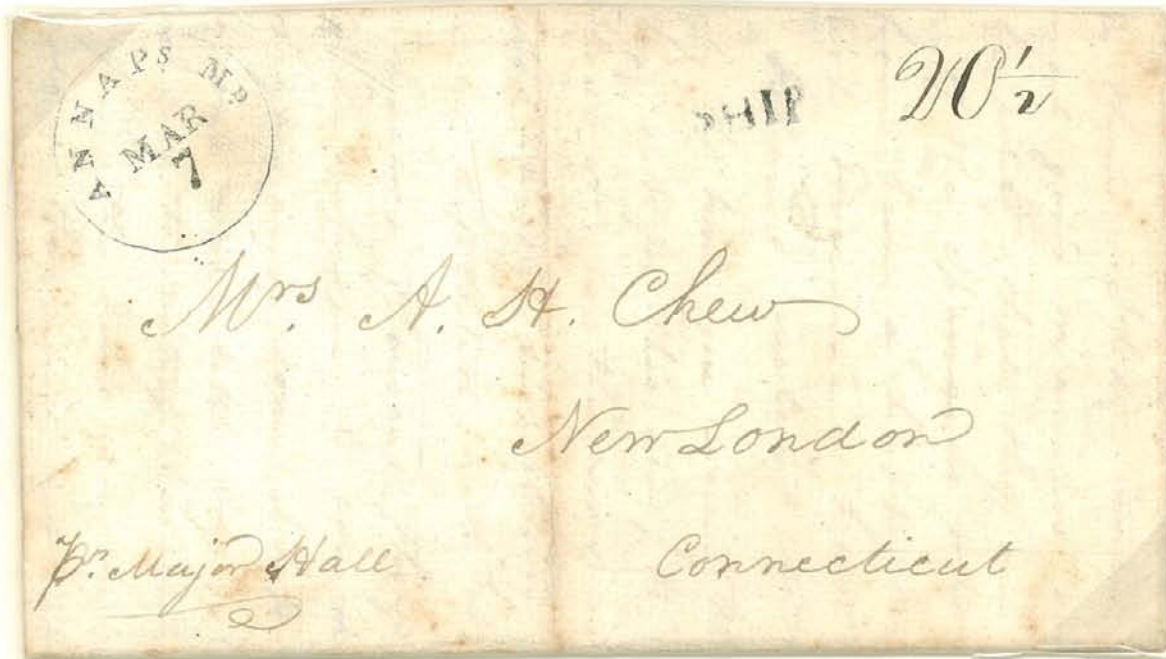 ANNAPS MD.
MAR
7
SHIP
20 1/2
Mrs. A. H. Chew
New London
Connecticut
Pr. Major Hall